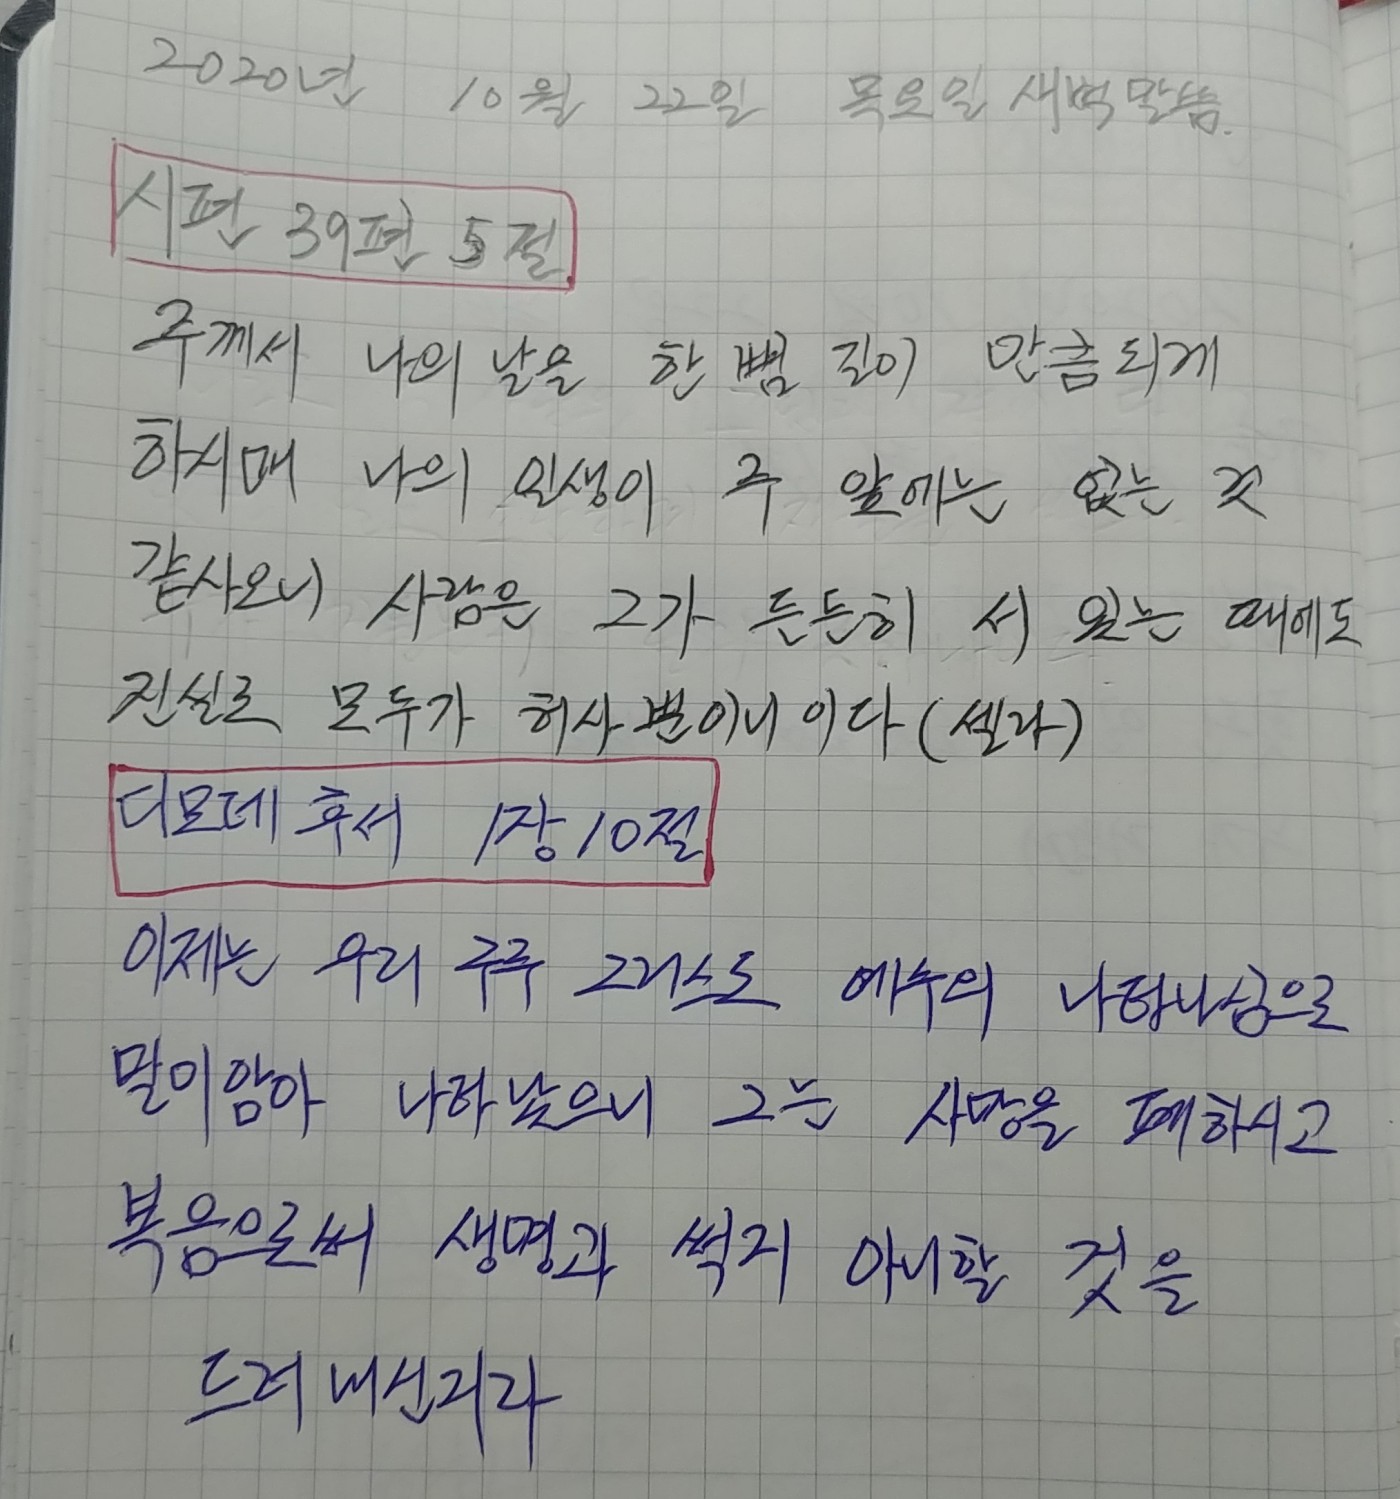 2020년 10월 22일 목요일 새벽말씀.
시편 39편 5절
주께서 나의 날을 한 뼘 길이 만큼되게
하시매 나의 인생이 주 앞에는 없는 것
같사오니 사람은 그가 든든히 서 있는 때에도
진실로 모두가 허사 뿐이니이다 (셀라)
디모데 후서 1장 10절
이제는 우리 구주 그리스도 예수의 나타나심으로
말미암아 나타났으니 그는 사망을 폐하시고
복음으로써 생명과 썩지 아니할 것을
드러내신지라